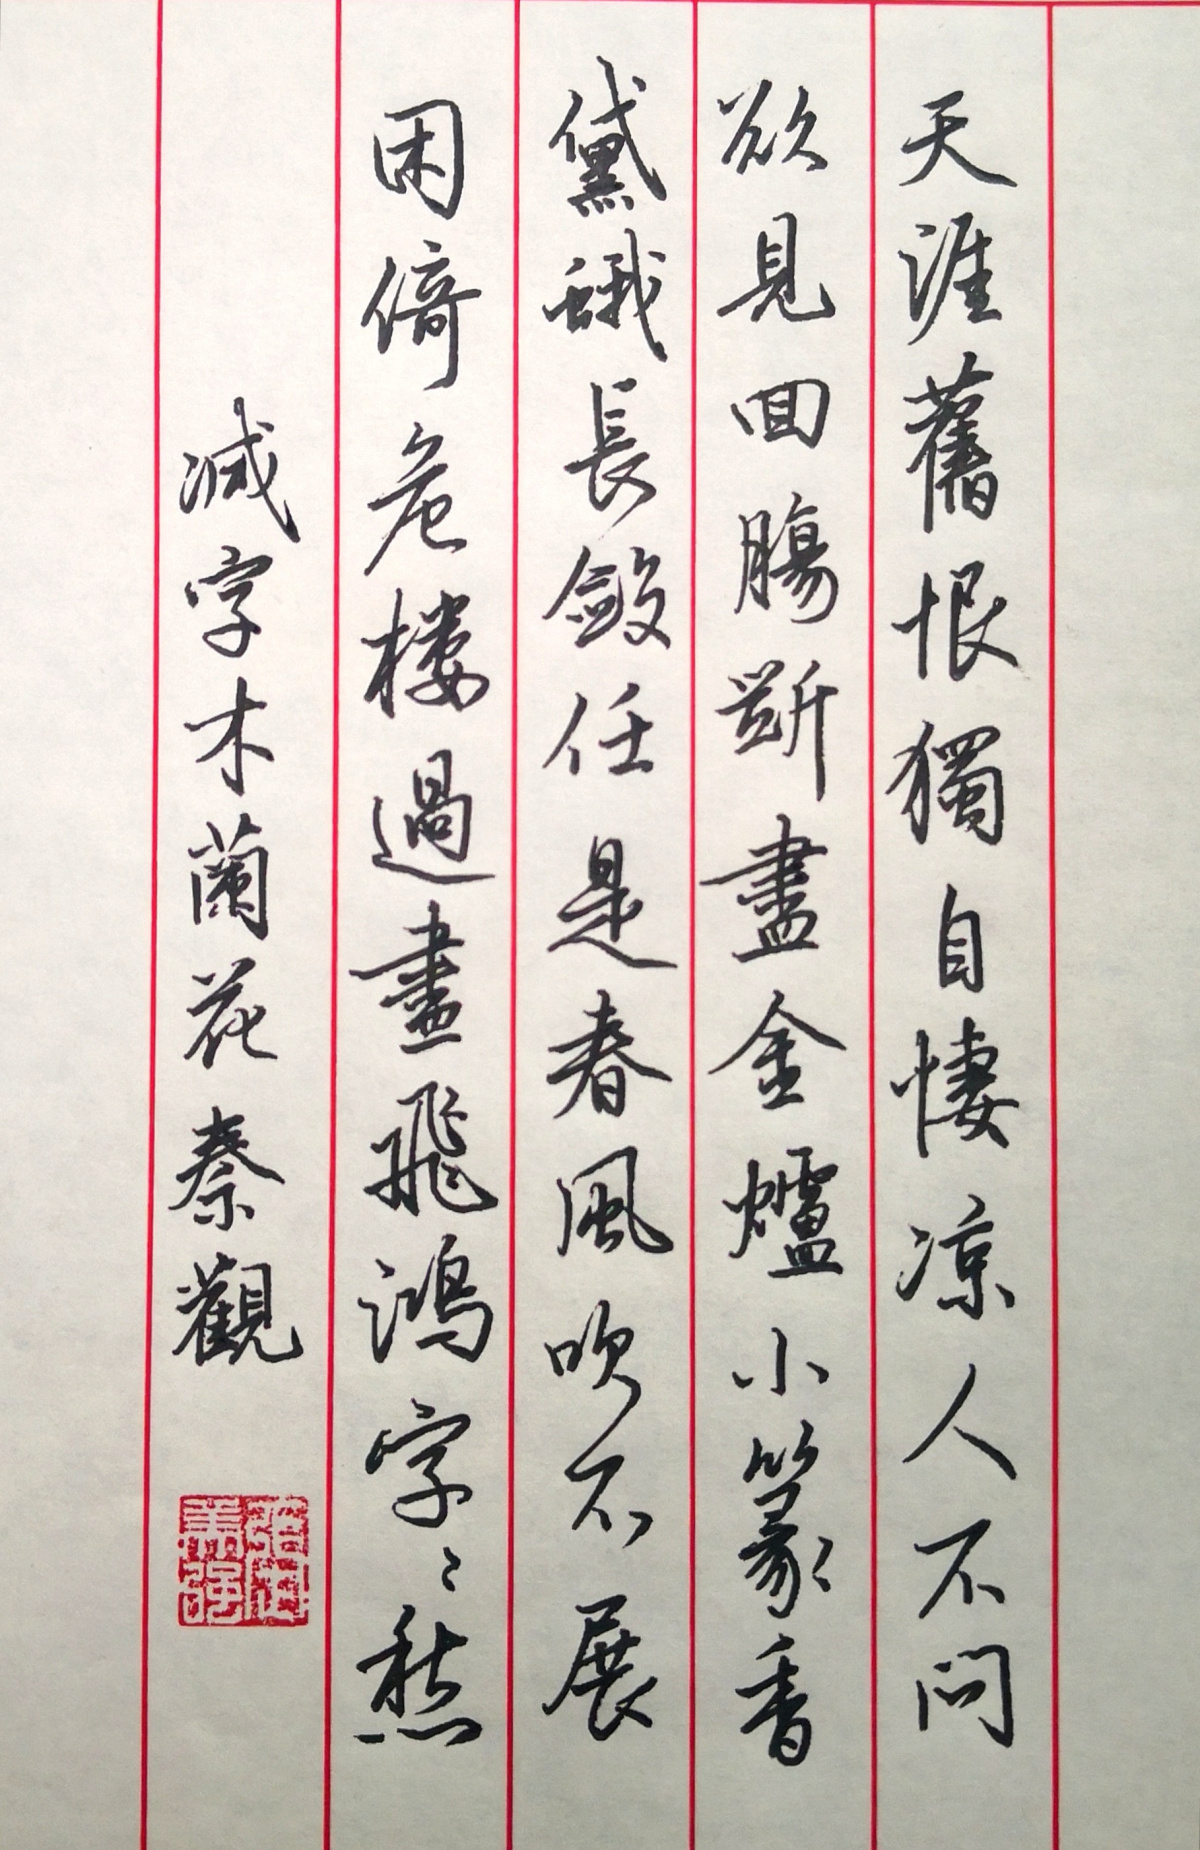 天涯舊恨獨自悽凉人不問
欲見回腸斷盡金爐小篆香
黛蛾長斂任是春風吹不展
困倚危樓過畫飛鴻字〻愁
减字木蘭花 秦觀